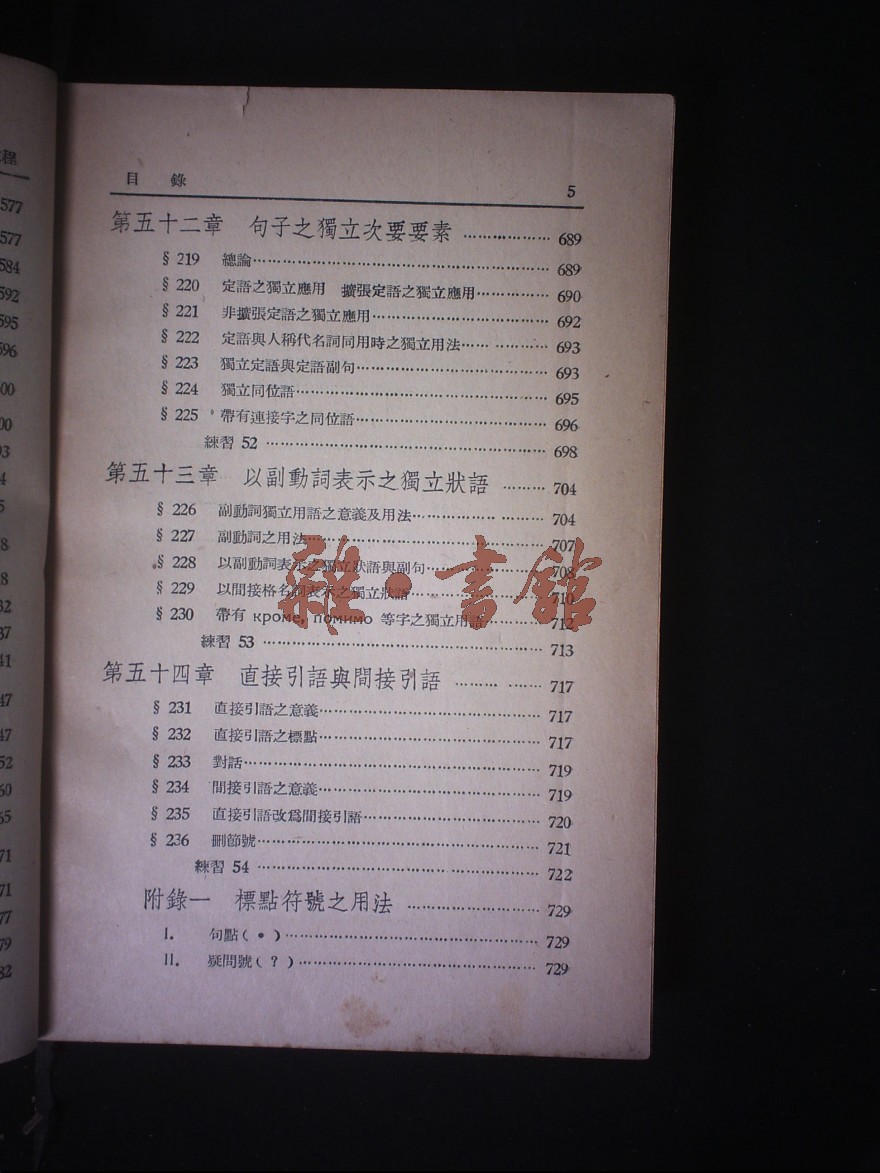 程
577
577
584
592
595
596
00
00
03
4
5
8
8
32
37
41
47
47
52
60
65
71
71
77
79
82
目 錄 5
第五十二章 句子之獨立次要要素 ……………… 689
§ 219 總論…………………………………………… 689
§ 220 定語之獨立應用 擴張定語之獨立應用…………… 690
§ 221 非擴張定語之獨立應用………………………… 692
§ 222 定語與人稱代名詞同用時之獨立用法…… ………… 693
§ 223 獨立定語與定語副句…………………………… 693
§ 224 獨立同位語……………………………………… 695
§ 225 帶有連接字之同位語…………………………… 696
練習 52 ………………………………………… 698
第五十三章 以副動詞表示之獨立狀語 ……… 704
§ 226 副動詞獨立用語之意義及用法………… ……… 704
§ 227 副動詞之用法…………………………………… 707
§ 228 以副動詞表示之獨立狀語與副句………………… 708
§ 229 以間接格名詞表示之獨立狀語…………………… 710
§ 230 帶有 кроме, помимо 等字之獨立用語………… 712
練習 53 ………………………………………… 713
第五十四章 直接引語與間接引語 ……… …… 717
§ 231 直接引語之意義………………………………… 717
§ 232 直接引語之標點………………………………… 717
§ 233 對話……………………………………………… 719
§ 234 間接引語之意義………………………………… 719
§ 235 直接引語改爲間接引語………………………… 720
§ 236 刪節號…………………………………………… 721
練習 54 ………………………………………… 722
附錄一 標點符號之用法 …………………… 729
I. 句點( • )………………………………………… 729
II. 疑問號( ? )……………………………………… 729
雜•書館